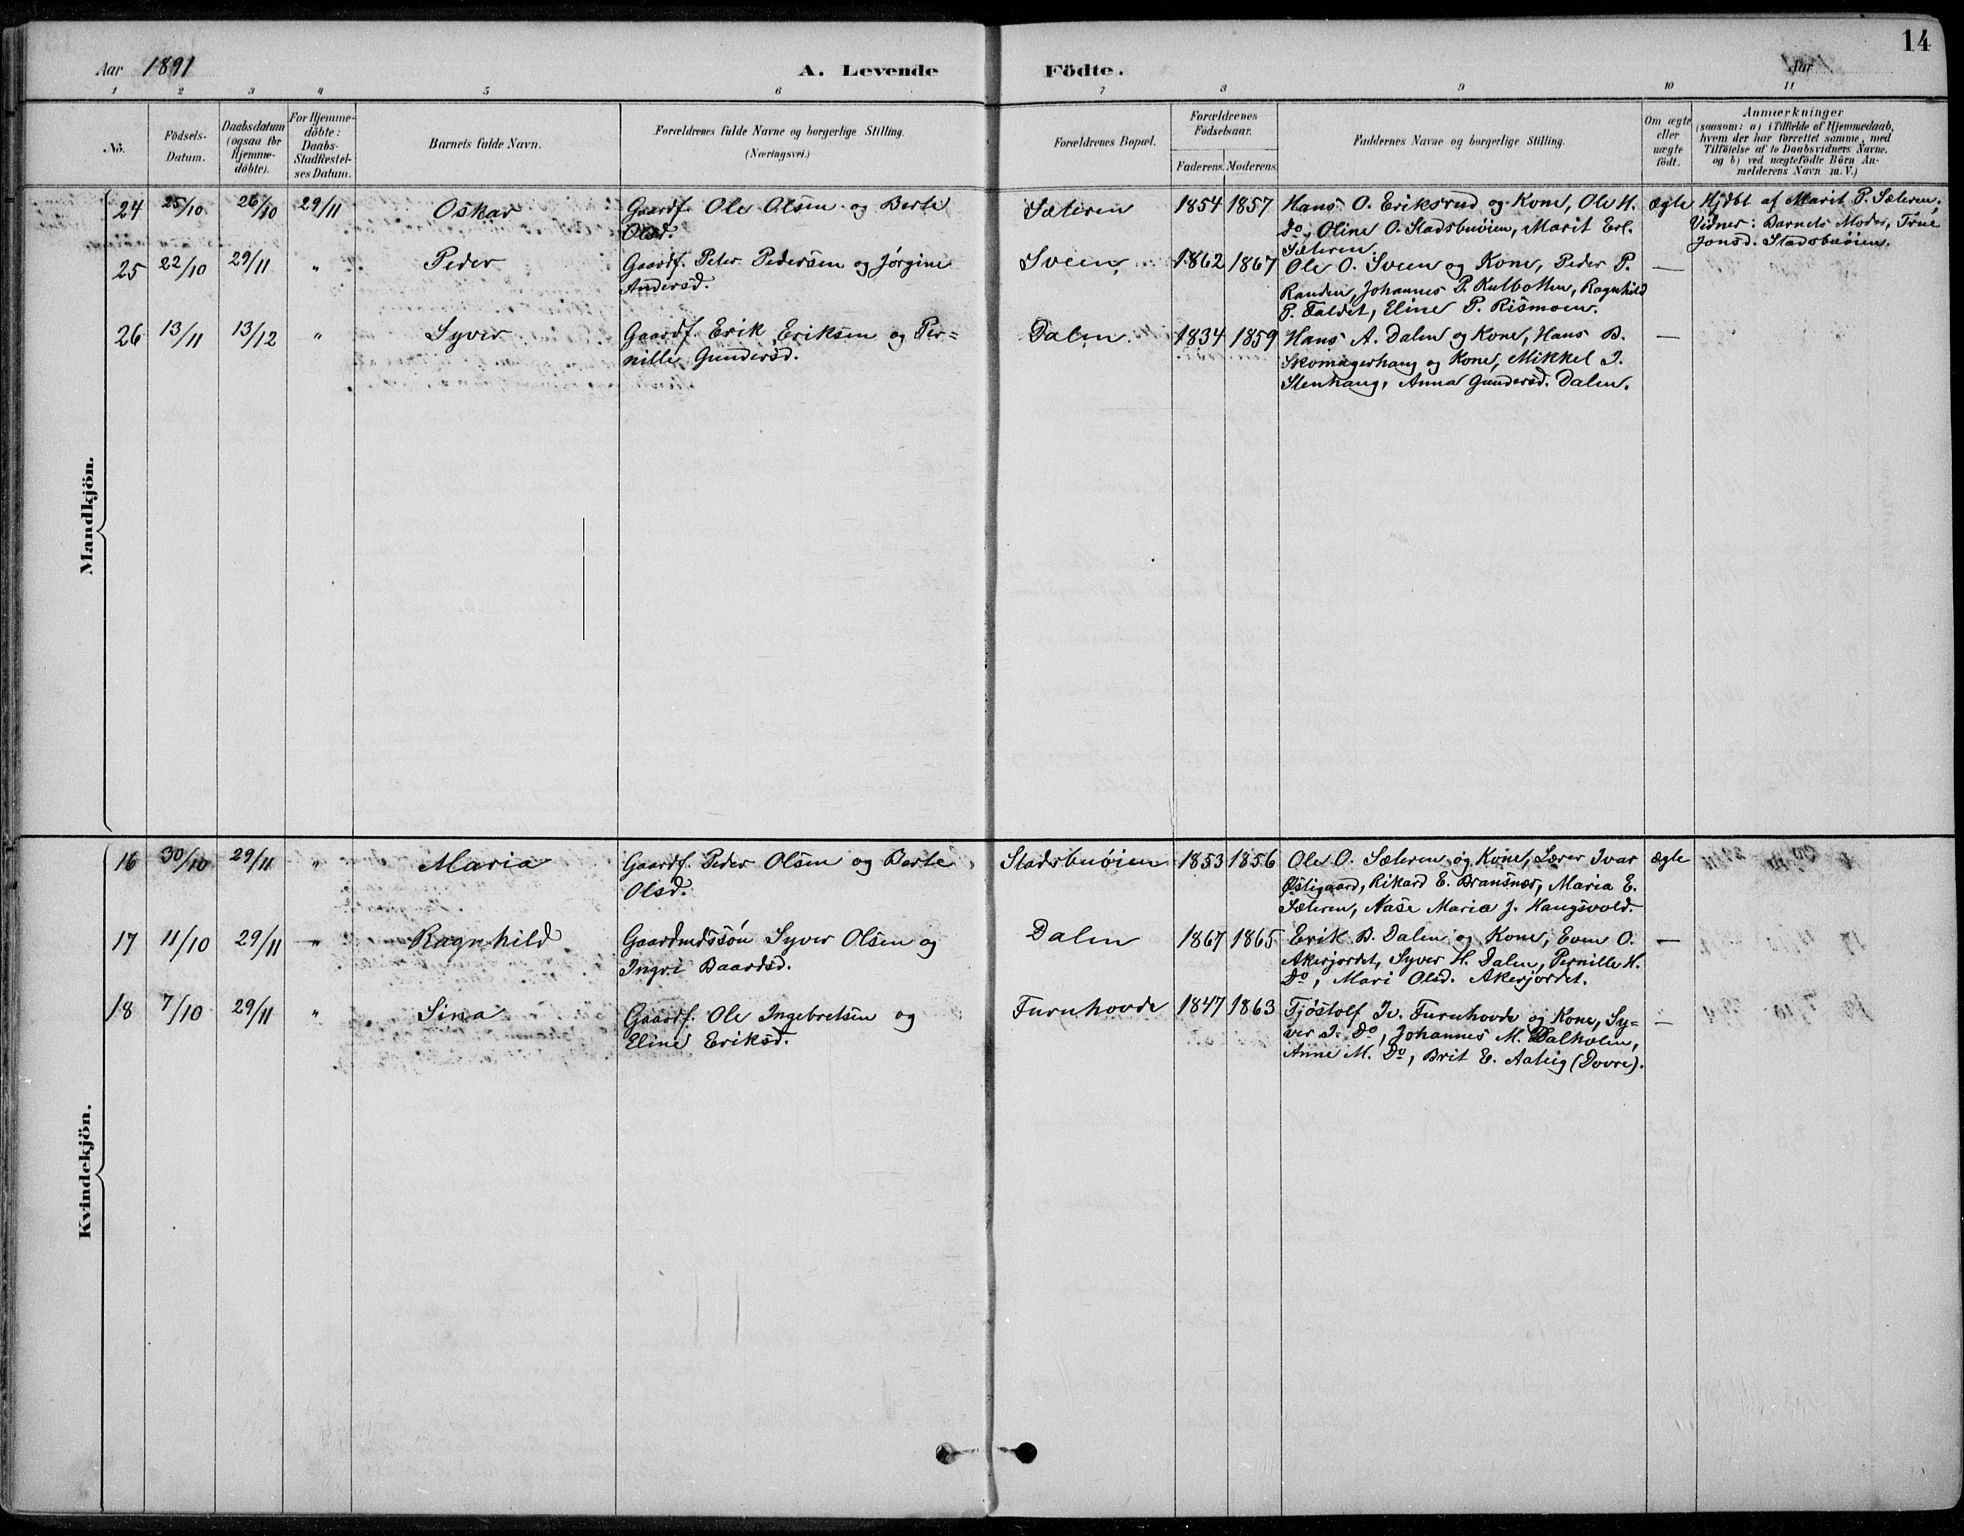 14
Aar 1891 A. Levende Födte. Aar
1 2 3 4 5 6 7 8 9 10 11
No.
Födsels-
Datum.
Daabsdatum
(ogsaa for
Hjemme-
döbte).
For Hjemme-
döbte:
Daabs-
Stadfæstel-
ses Datum.
Barnets fulde Navn.
Forældrenes fulde Navne og borgerlige Stilling.
(Næringsvei.)
Forældrenes Bopæl.
Forældrenes
Födselsaar.
Faderens. Moderens.
Faddernes Navne og borgerlige Stilling.
Om ægte
eller
uægte
født.
Anmærkninger
(saasom: a) i Tilfælde af Hjemmedaab,
hvem der har forrettet samme, med
Tilföielse af to Daabsvidners Navne,
og b) ved uægtefödte Börn An-
melderens Navn m. V.)
Mandkjön.
24 25/10 26/10 29/11 Oskar
Gaardf. Ole Olsen og Berte
Olsd.
Sæteren 1854 1857
Hans O. Eriksrud og Kone, Ole H.
Do, Oline O. Stadsbuøien, Marit Erl.
Sæteren
ægte
Hjdbt af Marit P. Sæteren,
Vidner: Barnets Moder, Frue
Jonsd. Stadsbuøien.
25 22/10 29/11 " Peder
Gaardf. Peter Pedersen og Jørgine
Andersd.
Sveen 1862 1867
Ole O. Sveen og Kone, Peder P.
Randen, Johannes P. Kulbotten, Ragnhild
P. Faldet, Eline P. Rismoen.
—
26 13/11 13/12 " Syver
Gaardf. Erik Eriksen og Per-
nille Gundersd.
Dalen 1834 1859
Hans A. Dalen og Kone, Hans B.
Skomagerhaug og Kone, Mikkel I.
Stenhaug, Anna Gundersd. Dalen.
—
Kvindekjön.
16 30/10 29/11 " Maria
Gaardf. Peder Olsen og Berte
Olsd.
Stadsbuøien 1853 1856
Ole O. Sæteren og Kone, Lærer Ivar
Østigaard, Rikard E. Bransnes, Maria E.
Sæteren, Aase Maria J. Haugsvold.
ægte
17 11/10 29/11 " Ragnhild
Gaardmdssøn Syver Olsen og
Ingri Baardsd.
Dalen 1867 1865
Erik B. Dalen og Kone, Even O.
Akerjordet, Syver H. Dalen, Pernille H.
Do, Mari Olsd. Akerjordet.
—
18 7/10 29/11 " Sina
Gaardf. Ole Ingebretsen og
Eline Eriksd.
Furuhovde 1847 1863
Tjøstolf Iv. Furuhovde og Kone, Sy-
ver I. Do, Johannes M. Dalholen,
Anne M. Do, Brit E. (Dovre).
—